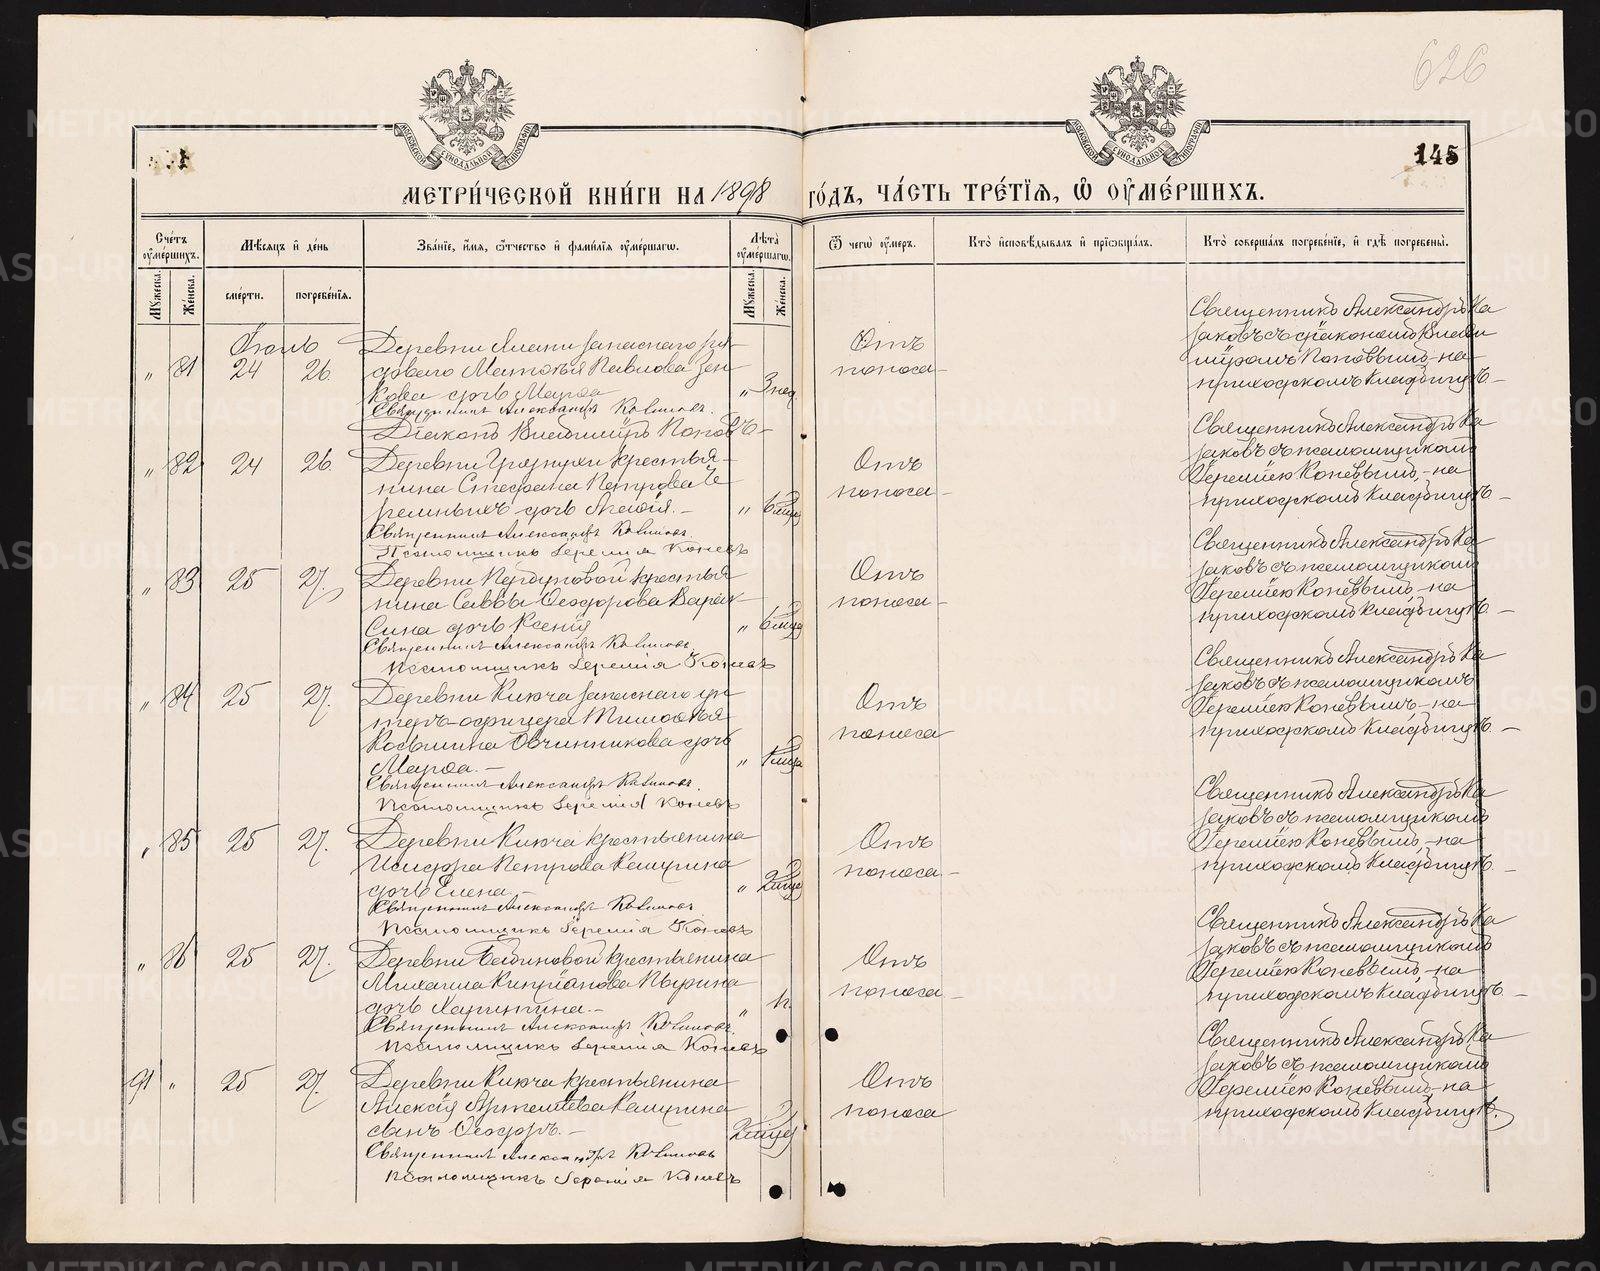 626
145
МЕТРИ́ЧЕСКОЙ КНИ́ГИ НА 1898 ГО́ДЪ, ЧА́СТЬ ТРЕ́ТІѦ, Ѿ ОУ҆МЕ́РШИХЪ.
Сче́тъ оу҆ме́ршихъ.
Мѣсѧцъ и҆ де́нь
Зва́нїе, и҆́мѧ, ѻ҆́тчество и҆ фами́лїѧ оу҆ме́ршагѡ.
Лѣ́та оу҆ме́ршагѡ.
Ѿ чегѡ̀ оу҆́меръ.
Кто̀ и҆сповѣ́дывалъ и҆ прїѡбща́лъ.
Кто̀ соверша́лъ погребе́нїе, и҆ гдѣ̀ погребены̀.
Мꙋ́жеска.
Же́нска.
сме́рти.
погребе́нїѧ.
Мꙋ́жеска.
Же́нска.
Іюль
Деревни запаснаго ря-
" 81 24 26
доваго Павлова
дочь Марѳа " 3 нед.
Священникъ Александръ
Діаконъ Владиміръ Поповъ
Отъ
поноса
Священникъ Александръ Ка
заковъ съ діакономъ Влади
міромъ Поповымъ, на
приходскомъ кладбищѣ.
" 82 24 26
Деревни крестья-
нина Стефана Петрова
дочь " 6 мѣс.
Священникъ Александръ
Псаломщикъ Іеремія Коневъ
Отъ
поноса
Священникъ Александръ Ка
заковъ съ псаломщикомъ
Іереміею Коневымъ, на
приходскомъ кладбищѣ
" 83 25 27.
Деревни крестья
нина Саввы Ѳеодорова Варак-
сина дочь Ксенія " 6 мѣс.
Священникъ Александръ
Псаломщикъ Іеремія Коневъ
Отъ
поноса
Священникъ Александръ Ка
заковъ съ псаломщикомъ
Іереміею Коневымъ, на
приходскомъ кладбищѣ
" 84 25 27.
Деревни Ключа запаснаго ун
теръ-офицера Тимоѳея
Космина Овчинникова дочь
Марѳа.
Священникъ Александръ
Псаломщикъ Іеремія Коневъ
Отъ
поноса
Священникъ Александръ Ка
заковъ съ псаломщикомъ
Іереміею Коневымъ, на
приходскомъ кладбищѣ.
" 85 25 27.
Деревни Ключа крестьянина
Исидора Петрова
дочь Елена. " 2 мѣс
Священникъ Александръ
Псаломщикъ Іеремія Коневъ
Отъ
поноса
Священникъ Александръ Ка
заковъ съ псаломщикомъ
Іереміею Коневымъ, на
приходскомъ кладбищѣ.
" 86 25 27.
Деревни крестьянина
Михаила Кипріанова
дочь Харитина. "
Священникъ Александръ
Псаломщикъ Іеремія Коневъ
Отъ
поноса
Священникъ Александръ Ка
заковъ съ псаломщикомъ
Іереміею Коневымъ, на
приходскомъ кладбищѣ.
91 " 25 27.
Деревни Ключа крестьянина
Алексія Артемьева
сынъ Ѳеодоръ. 2 мѣс
Священникъ Александръ
Псаломщикъ Іеремія Коневъ
Отъ
поноса
Священникъ Александръ Ка
заковъ съ псаломщикомъ
Іереміею Коневымъ, на
приходскомъ кладбищѣ.